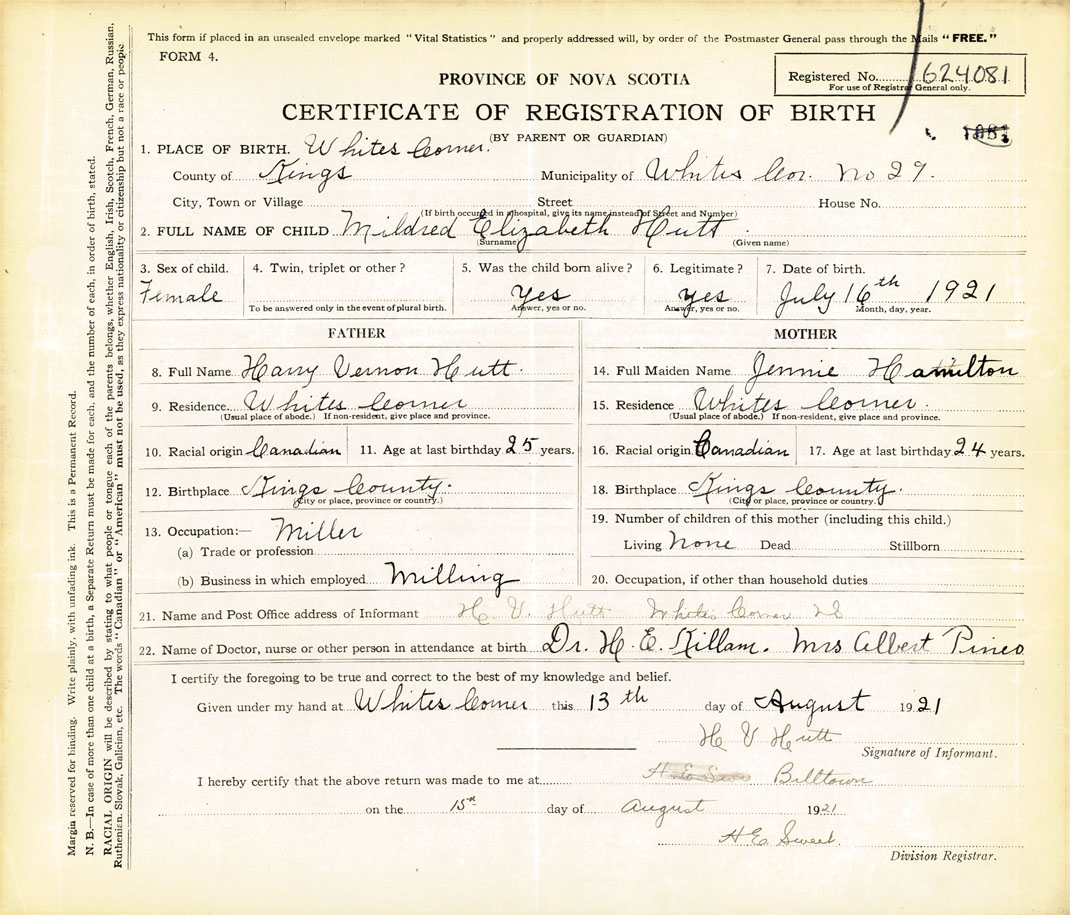 This form if placed in an unsealed envelope marked "Vital Statistics" and properly addressed will, by order of the Postmaster General pass through the Mails "FREE."
FORM 4.
Registered No. 624081
For use of Registrar General only.
PROVINCE OF NOVA SCOTIA
CERTIFICATE OF REGISTRATION OF BIRTH
(BY PARENT OR GUARDIAN)
1. PLACE OF BIRTH. Whites Corner.
County of Kings Municipality of Whites Cor. No 29.
City, Town or Village Street House No.
(If birth occurred in a hospital, give its name instead of Street and Number)
2. FULL NAME OF CHILD Mildred Elizabeth Hutt.
(Surname) (Given name)
3. Sex of child. 4. Twin, triplet or other? 5. Was the child born alive? 6. Legitimate? 7. Date of birth.
Female Yes Yes July 16th 1921
To be answered only in the event of plural birth. Answer, yes or no. Answer, yes or no. Month, day, year.
FATHER MOTHER
8. Full Name Harry Vernon Hutt. 14. Full Maiden Name Jennie Hamilton
9. Residence Whites Corner 15. Residence Whites Corner.
(Usual place of abode.) If non-resident, give place and province. (Usual place of abode.) If non-resident, give place and province.
10. Racial origin Canadian 11. Age at last birthday 25 years. 16. Racial origin Canadian 17. Age at last birthday 24 years.
12. Birthplace Kings County. 18. Birthplace Kings County.
(City or place, province or country.) (City or place, province or country.)
13. Occupation:— Miller 19. Number of children of this mother (including this child.)
(a) Trade or profession Living None Dead Stillborn
(b) Business in which employed Milling 20. Occupation, if other than household duties
21. Name and Post Office address of Informant H. V. Hutt Whites Corner NS
22. Name of Doctor, nurse or other person in attendance at birth Dr. H. E. Killam. Mrs Albert Pineo
I certify the foregoing to be true and correct to the best of my knowledge and belief.
Given under my hand at Whites Corner this 13th day of August 1921
H V Hutt
Signature of Informant.
I hereby certify that the above return was made to me at Billtown
on the 15th day of August 1921
H E Sweet.
Division Registrar.
Margin reserved for binding. Write plainly, with unfading ink. This is a Permanent Record.
N. B.—In case of more than one child at a birth, a Separate Return must be made for each, and the number of each, in order of birth, stated.
RACIAL ORIGIN will be described by stating to what people or tongue each of the parents belongs, whether English, Irish, Scotch, French, German, Russian,
Ruthenian, Slovak, Galician, etc. The words "Canadian" or "American" must not be used, as they express nationality or citizenship but not a race or people